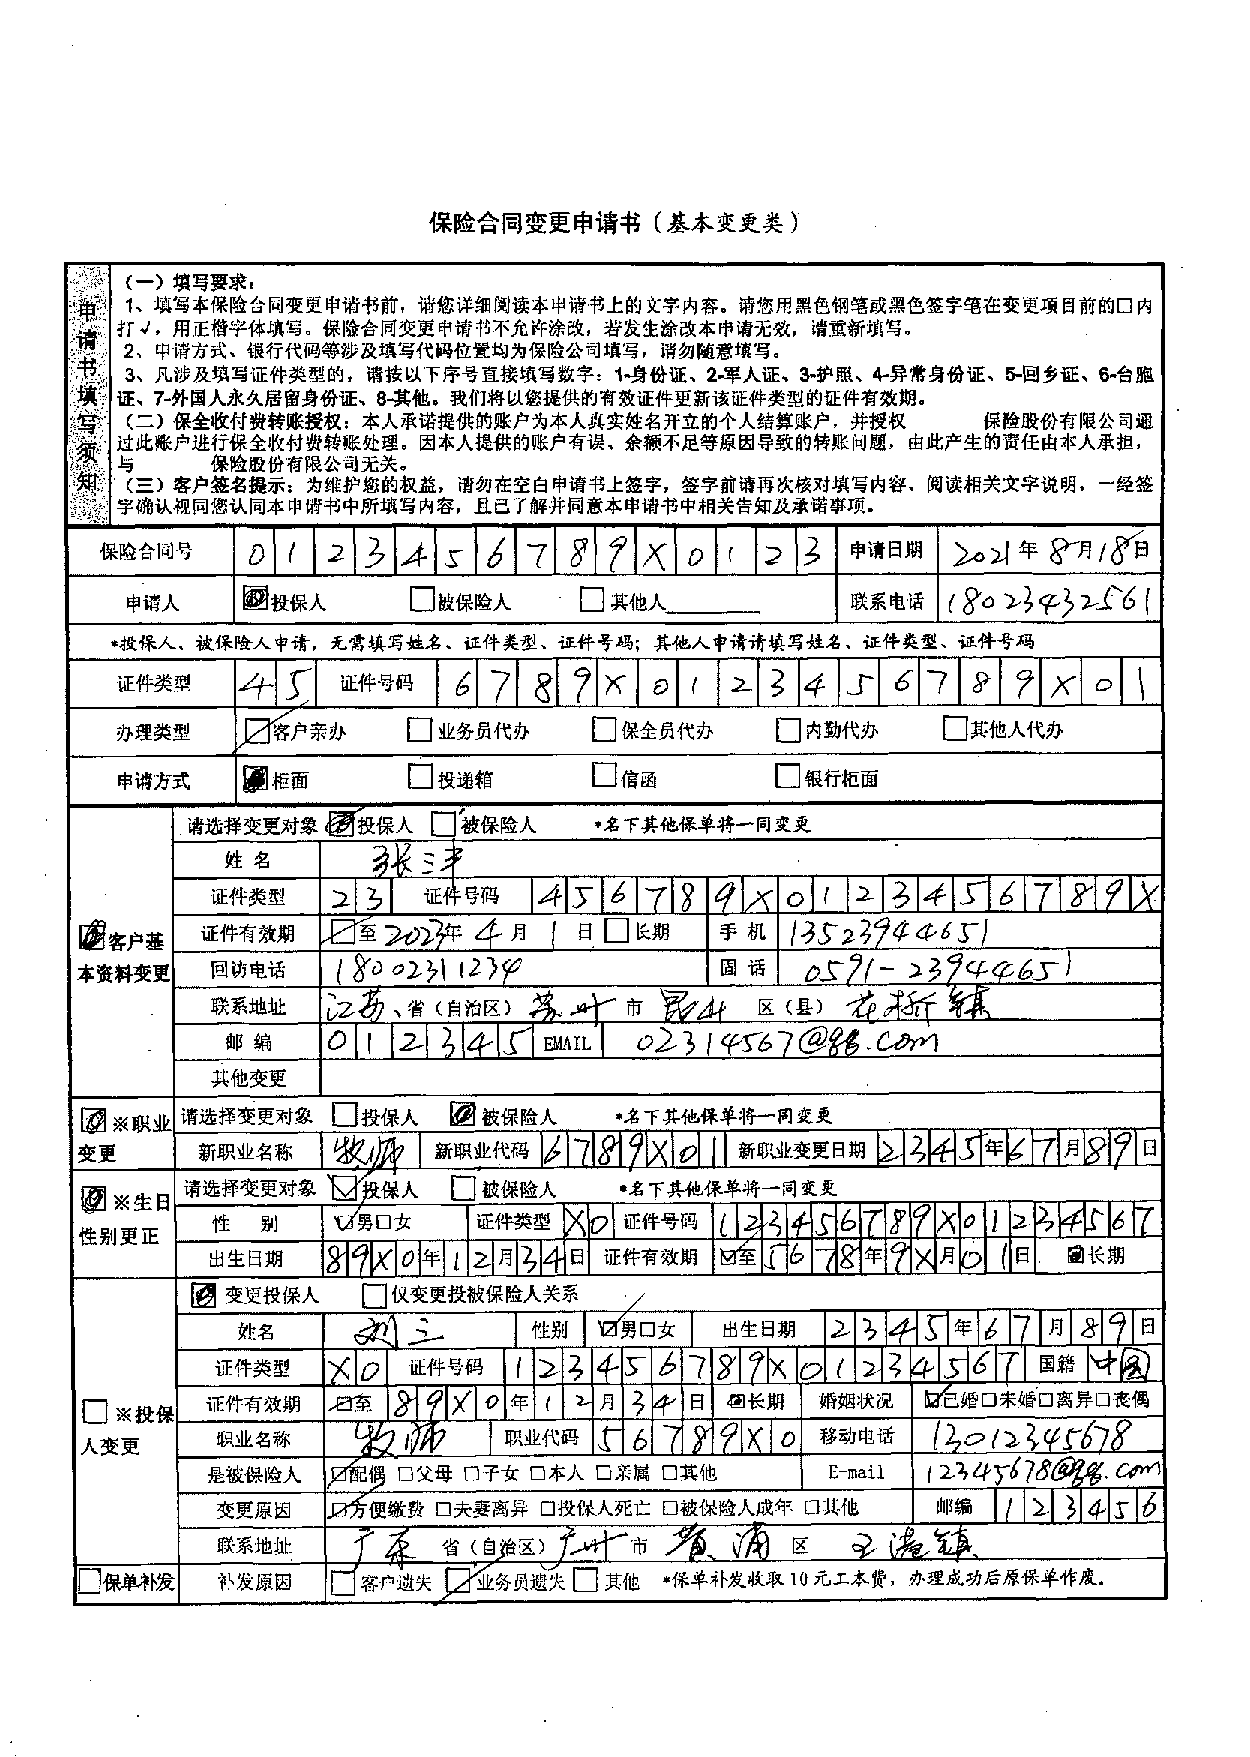 保险合同变更申请书（基本变更类）
申请书填写须知
（一）填写要求：
1、填写本保险合同变更申请书前，请您详细阅读本申请书上的文字内容。请您用黑色钢笔或黑色签字笔在变更项目前的□内
打√，用正楷字体填写。保险合同变更申请书不允许涂改，若发生涂改本申请无效，请重新填写。
2、申请方式、银行代码等涉及填写代码位置均为保险公司填写，请勿随意填写。
3、凡涉及填写证件类型的，请按以下序号直接填写数字：1-身份证、2-军人证、3-护照、4-异常身份证、5-回乡证、6-台胞
证、7-外国人永久居留身份证、8-其他。我们将以您提供的有效证件更新该证件类型的证件有效期。
（二）保全收付费转账授权：本人承诺提供的账户为本人真实姓名开立的个人结算账户，并授权 保险股份有限公司通
过此账户进行保全收付费转账处理。因本人提供的账户有误、余额不足等原因导致的转账问题，由此产生的责任由本人承担，
与 保险股份有限公司无关。
（三）客户签名提示：为维护您的权益，请勿在空白申请书上签字，签字前请再次核对填写内容、阅读相关文字说明，一经签
字确认视同您认同本申请书中所填写内容，且已了解并同意本申请书中相关告知及承诺事项。
保险合同号 0123456789X0123 申请日期 2021年8月18日
申请人 ☑投保人 □被保险人 □其他人 联系电话 18023432561
*投保人、被保险人申请，无需填写姓名、证件类型、证件号码；其他人申请请填写姓名、证件类型、证件号码
证件类型 45 证件号码 6789X0123456789X01
办理类型 ☑客户亲办 □业务员代办 □保全员代办 □内勤代办 □其他人代办
申请方式 ☑柜面 □投递箱 □信函 □银行柜面
☑客户基本资料变更 请选择变更对象 ☑投保人 □被保险人 *名下其他保单将一同变更
姓名 张三丰
证件类型 23 证件号码 456789X0123456789X
证件有效期 ☑至2023年4月1日 □长期 手机 13523944651
回访电话 18002311234 固话 0591-23944651
联系地址 江苏省（自治区）苏州市昆山区（县）花桥镇
邮编 012345 EMAIL 02314567@qq.com
其他变更
☑※职业变更 请选择变更对象 □投保人 ☑被保险人 *名下其他保单将一同变更
新职业名称 牧师 新职业代码 6789X01 新职业变更日期 2345年67月89日
☑※生日性别更正 请选择变更对象 ☑投保人 □被保险人 *名下其他保单将一同变更
性别 ☑男□女 证件类型 X0 证件号码 123456789X01234567
出生日期 89X0年12月34日 证件有效期 ☑至5678年9X月01日 ☑长期
□※投保人变更 ☑变更投保人 □仅变更投被保险人关系
姓名 刘三 性别 ☑男□女 出生日期 2345年67月89日
证件类型 X0 证件号码 123456789X01234567 国籍 中国
证件有效期 ☑至89X0年12月34日 ☑长期 婚姻状况 ☑已婚□未婚□离异□丧偶
职业名称 牧师 职业代码 56789X0 移动电话 13012345678
是被保险人 ☑配偶 □父母 □子女 □本人 □亲属 □其他 E-mail 12345678@qq.com
变更原因 ☑方便缴费 □夫妻离异 □投保人死亡 □被保险人成年 □其他 邮编 123456
联系地址 广东省（自治区）广州市黄浦区 王港镇
□保单补发 补发原因 □客户遗失 ☑业务员遗失 □其他 *保单补发收取10元工本费，办理成功后原保单作废。